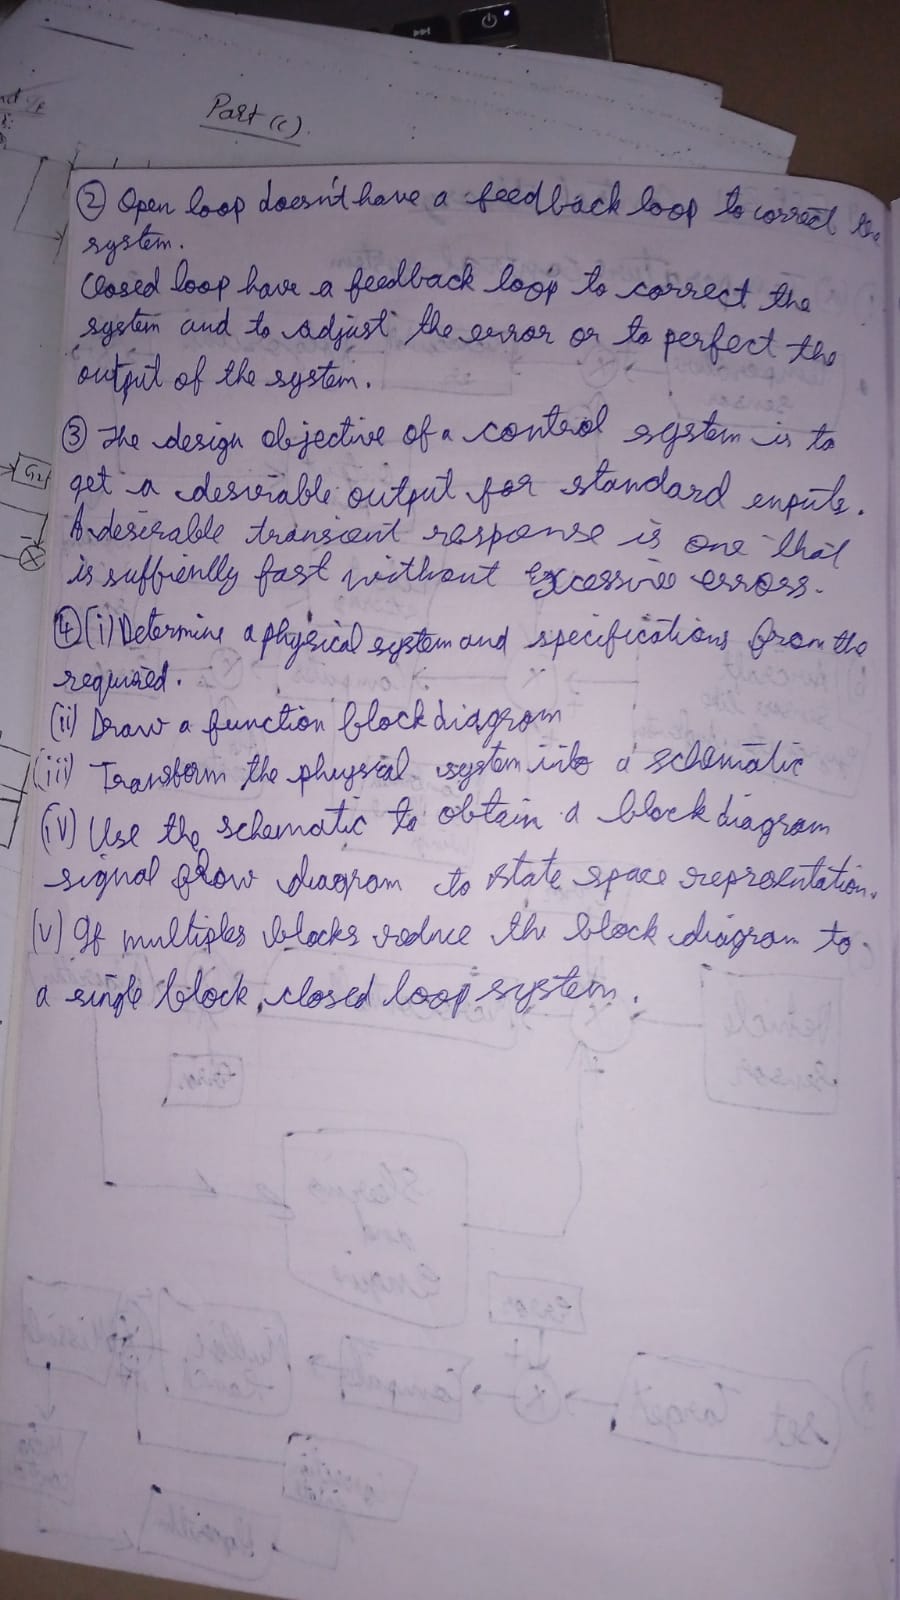 Part (c).
② Open loop doesn't have a feedback loop to correct the
system.
Closed loop have a feedback loop to correct the
system and to adjust the error or to perfect the
output of the system.
③ The design objective of a control system is to
get a desirable output for standard inputs.
A desirable transient response is one that
is suffienlly fast without Excessive errors.
④ (i) Determine a physical system and specifications from the
required.
(ii) Draw a function block diagram
(iii) Transform the physical system into a schematic
(iv) Use the schematic to obtain a block diagram
signal flow diagram to state space representation.
(v) If multiples blocks reduce the block diagram to
a single block, closed loop system.
G2